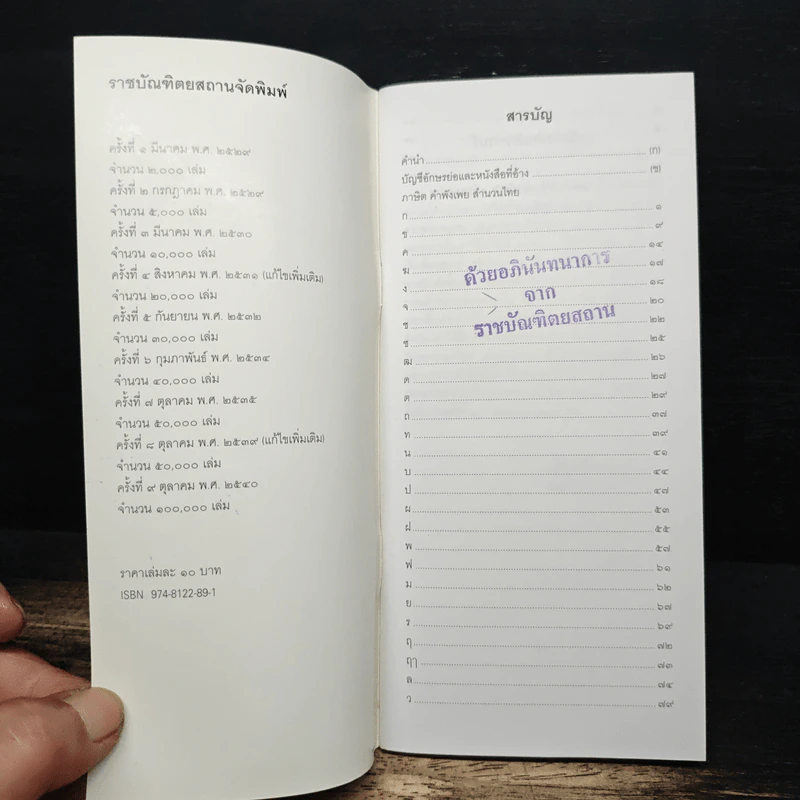 ราชบัณฑิตยสถานจัดพิมพ์
ครั้งที่ ๑ มีนาคม พ.ศ. ๒๕๒๙
จำนวน ๒,๐๐๐ เล่ม
ครั้งที่ ๒ กรกฎาคม พ.ศ. ๒๕๒๙
จำนวน ๕,๐๐๐ เล่ม
ครั้งที่ ๓ มีนาคม พ.ศ. ๒๕๓๐
จำนวน ๑๐,๐๐๐ เล่ม
ครั้งที่ ๔ สิงหาคม พ.ศ. ๒๕๓๑ (แก้ไขเพิ่มเติม)
จำนวน ๒๐,๐๐๐ เล่ม
ครั้งที่ ๕ กันยายน พ.ศ. ๒๕๓๒
จำนวน ๓๐,๐๐๐ เล่ม
ครั้งที่ ๖ กุมภาพันธ์ พ.ศ. ๒๕๓๔
จำนวน ๔๐,๐๐๐ เล่ม
ครั้งที่ ๗ ตุลาคม พ.ศ. ๒๕๓๕
จำนวน ๕๐,๐๐๐ เล่ม
ครั้งที่ ๘ ตุลาคม พ.ศ. ๒๕๓๙ (แก้ไขเพิ่มเติม)
จำนวน ๕๐,๐๐๐ เล่ม
ครั้งที่ ๙ ตุลาคม พ.ศ. ๒๕๔๐
จำนวน ๑๐๐,๐๐๐ เล่ม
ราคาเล่มละ ๑๐ บาท
ISBN 974-8122-89-1
สารบัญ
คำนำ (ก)
บัญชีอักษรย่อและหนังสือที่อ้าง (ข)
ภาษิต คำพังเพย สำนวนไทย
ก ๑
ข ๙
ค ๑๔
ฆ ๑๗
ง ๑๘
จ ๒๐
ช ๒๒
ซ ๒๕
ฒ ๒๖
ด ๒๗
ต ๒๙
ถ ๓๗
ท ๓๙
น ๔๑
บ ๔๔
ป ๔๗
ผ ๕๓
ฝ ๕๕
พ ๕๗
ฟ ๖๑
ม ๖๒
ย ๖๗
ร ๖๙
ฤ ๗๒
ฤๅ ๗๓
ล ๗๔
ว ๗๙
ด้วยอภินันทนาการ
จาก
ราชบัณฑิตยสถาน